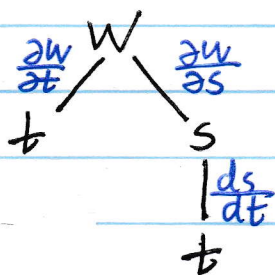 W
∂w/∂t ∂w/∂s
t s
ds/dt
t